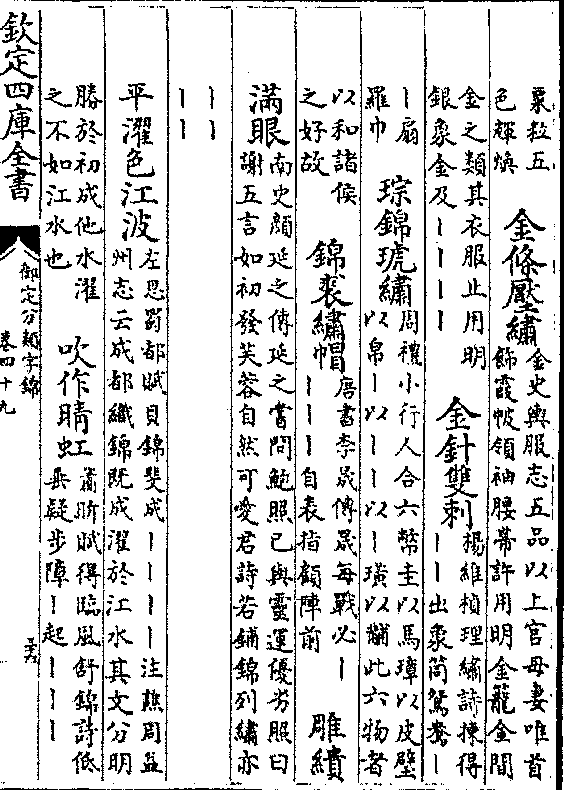 粟粒五
色輝煥
金條壓繡
金史輿服志五品以上官母妻唯首
飾霞帔領袖腰帶許用明金籠金間
金之類其衣服止用明
銀象金及丨丨丨丨
金針雙刺
楊維楨理繡詩揀得
丨丨出象筒鴛鴦丨
丨扇
羅巾
琮錦琥繡
周禮小行人合六幣圭以馬璋以皮璧
以帛丨以丨丨以丨璜以黼此六物者
以和諸侯
之好故
錦裘繡帽
唐書李晟傳晟每戰必丨
丨丨丨自表指顧陣前
雕繢
滿眼
南史顏延之傳延之嘗問鮑照已與靈運優劣照曰
謝五言如初發芙蓉自然可愛君詩若鋪錦列繡亦
丨丨
丨丨
平濯色江波
左思蜀都賦貝錦斐成丨丨丨丨注譙周益
州志云成都織錦既成濯於江水其文分明
勝於初成他水濯
之不如江水也
吹作晴虹
蕭昕賦得臨風舒錦詩低
垂疑步障丨起丨丨丨
欽定四庫全書
御定分類字錦
卷四十九